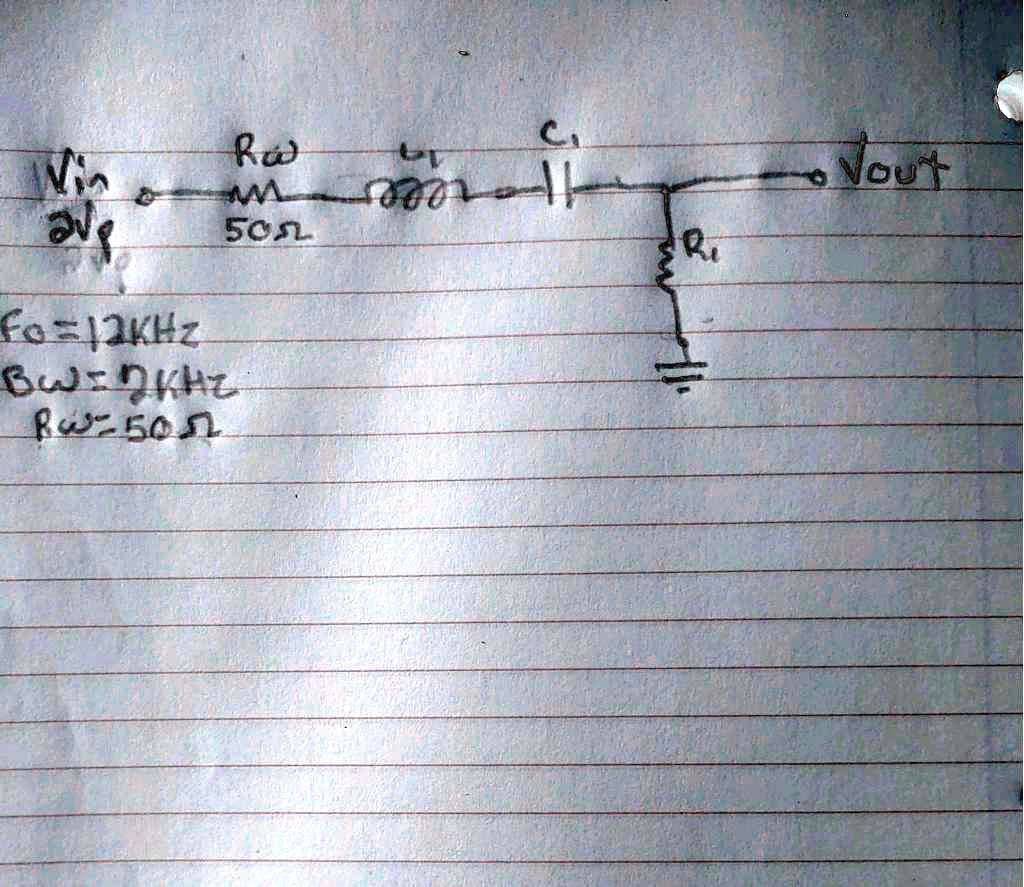 Rw L1 C1
Vin Vout
2Vp
50Ω R1
Fo=12KHz
BW=2KHz
Rw=50Ω